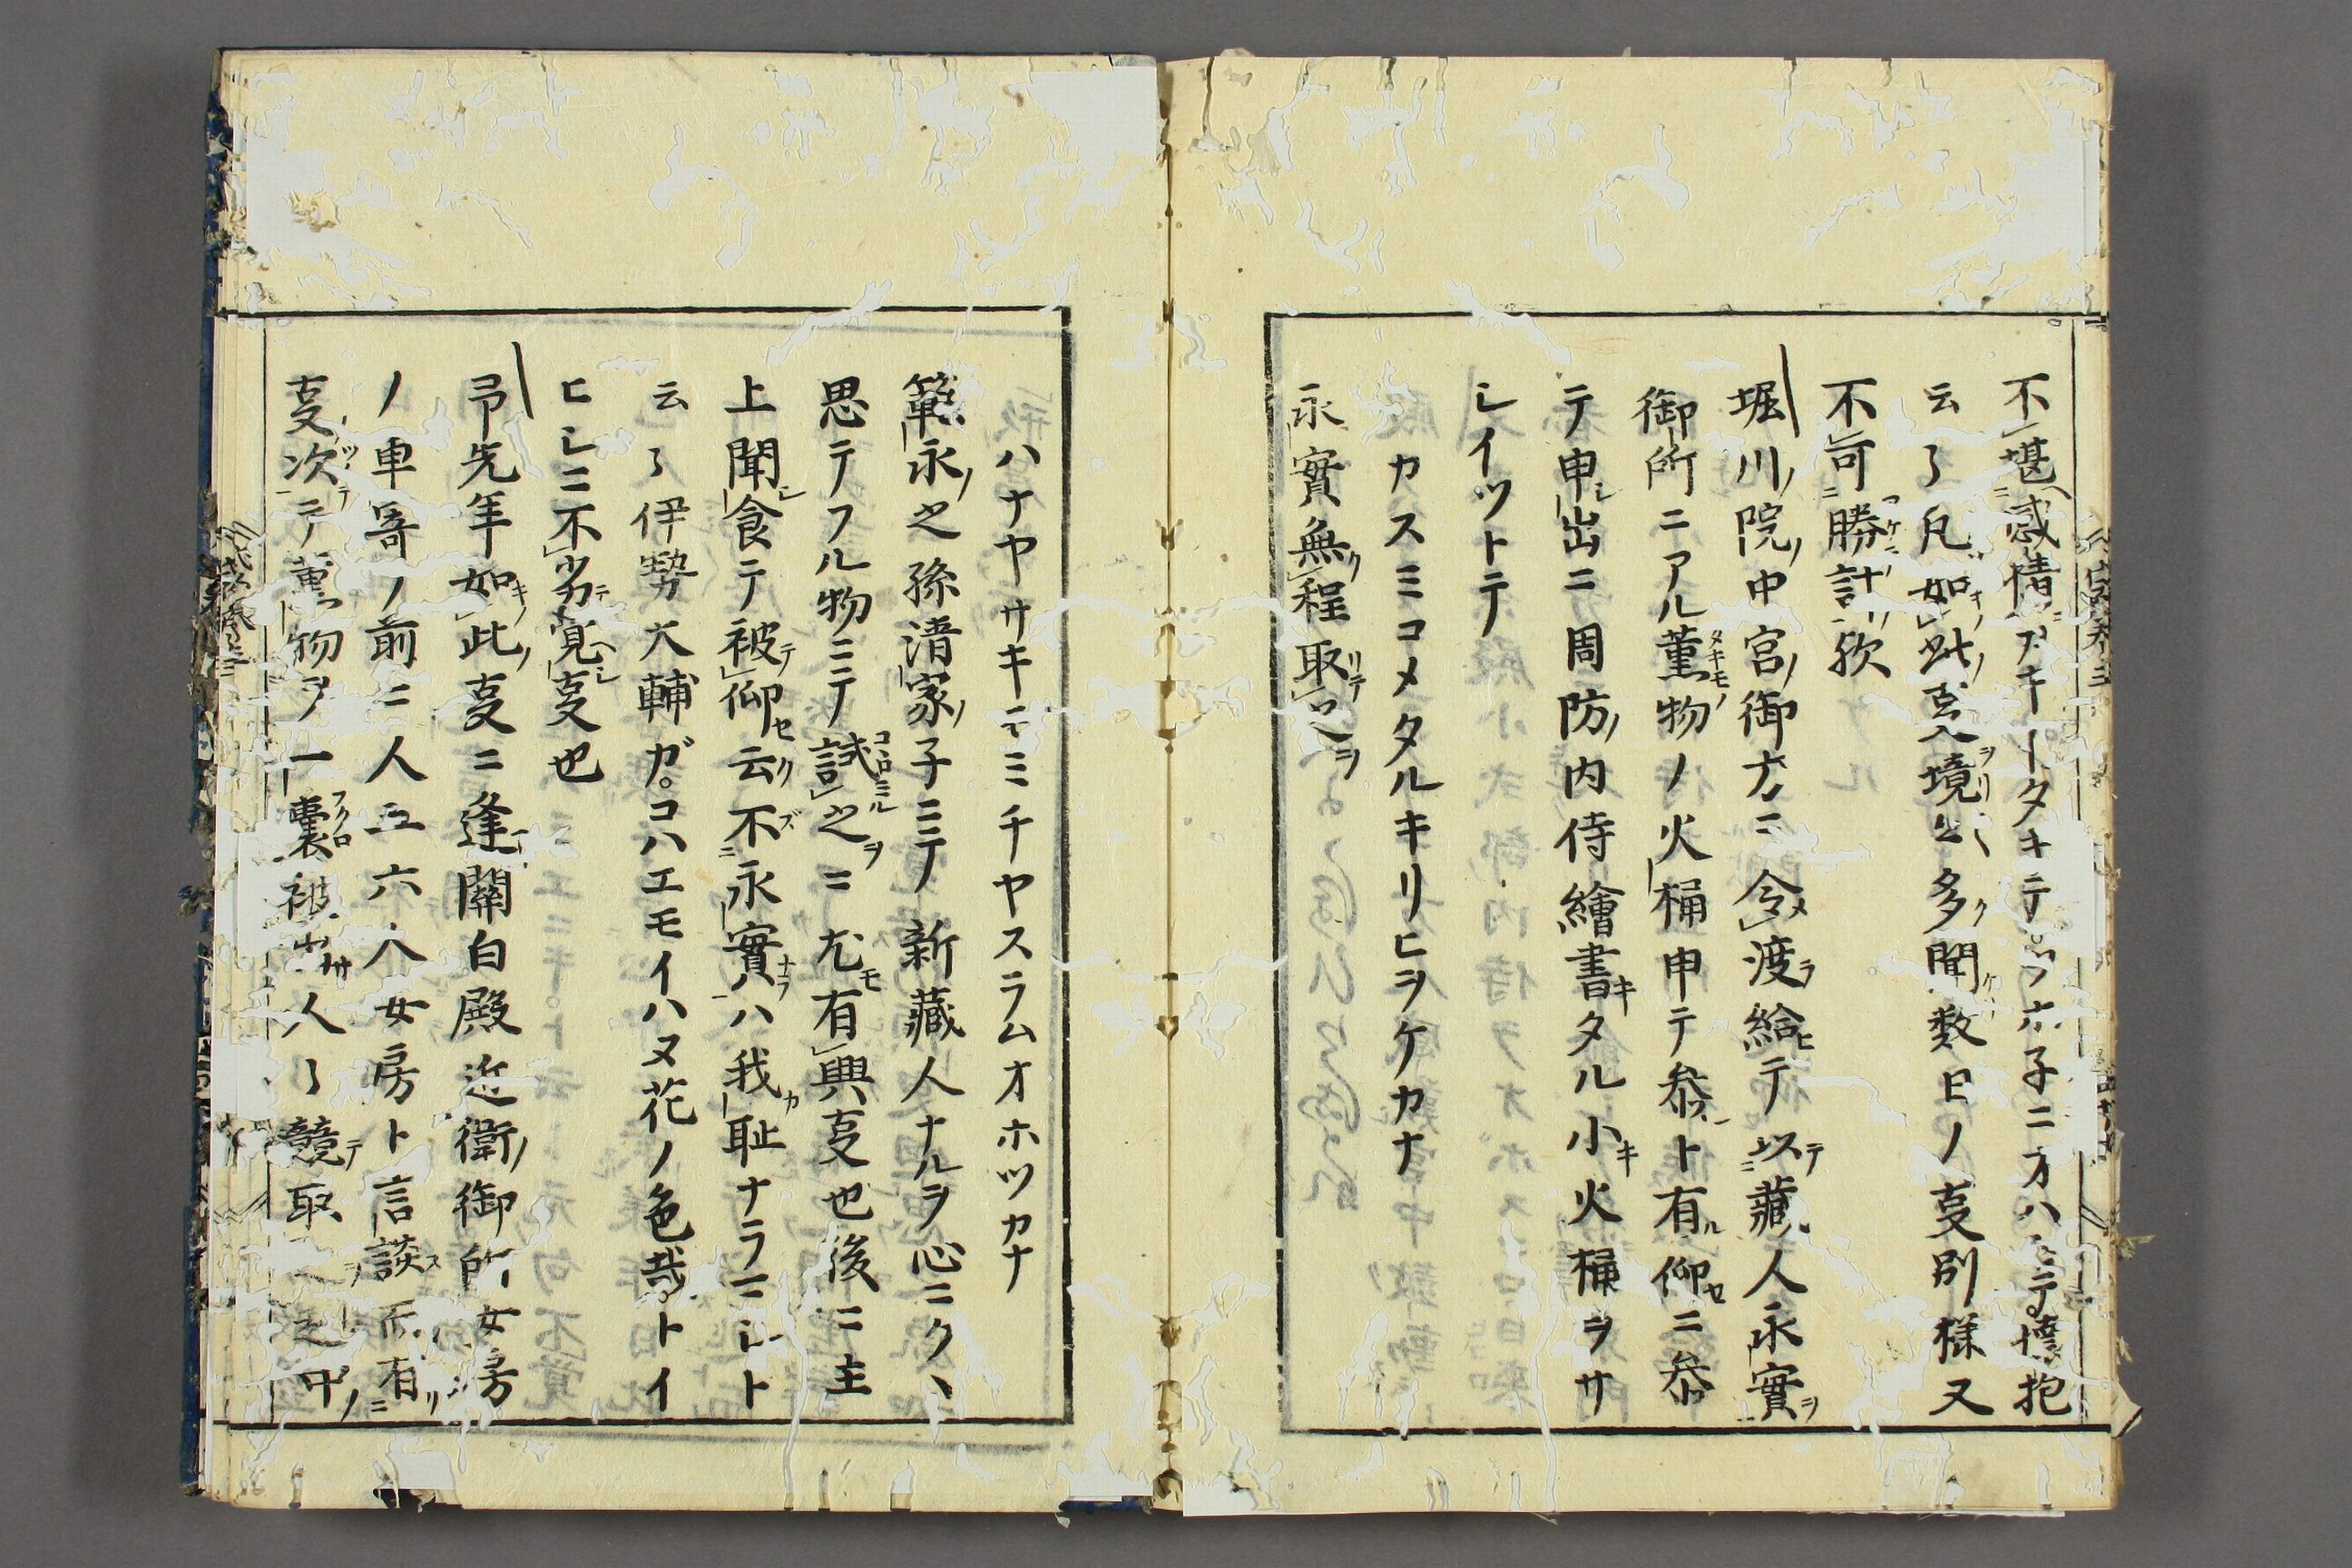 不堪感情カキータキテホ子ニオハシテ懐抱
云々凡如此㕝入境ニ多聞数日ノ㕝別様又
不可勝計歟
堀川院中宮御方ニ令渡給テ以藏人永實
御所ニアル薫物ノ火桶申テ参ト有仰ニ参
テ申出ニ周防内侍繪書タル小火桶ヲサ
シイツトテ
カスミコメタルキリヒヲケカナ
永實無程取之
ハナヤサキモミチヤスラムオホツカナ
範永之孫清家子ニテ新藏人ナルヲ心ニクヽ
思テフル物ニテ試之ニ尤有興㕝也後ニ主
上聞食テ被仰云不永實ハ我耻ナラマシト
云々伊勢大輔ガコハエモイハヌ花ノ色哉トイ
ヒシニ不劣覚㕝也
予先年如此㕝ニ逢關白殿近衛御所女房
ノ車寄ノ前ニ人五六人女房ト言談而有
㕝次テ薫物ヲ一嚢被出人々競取之中